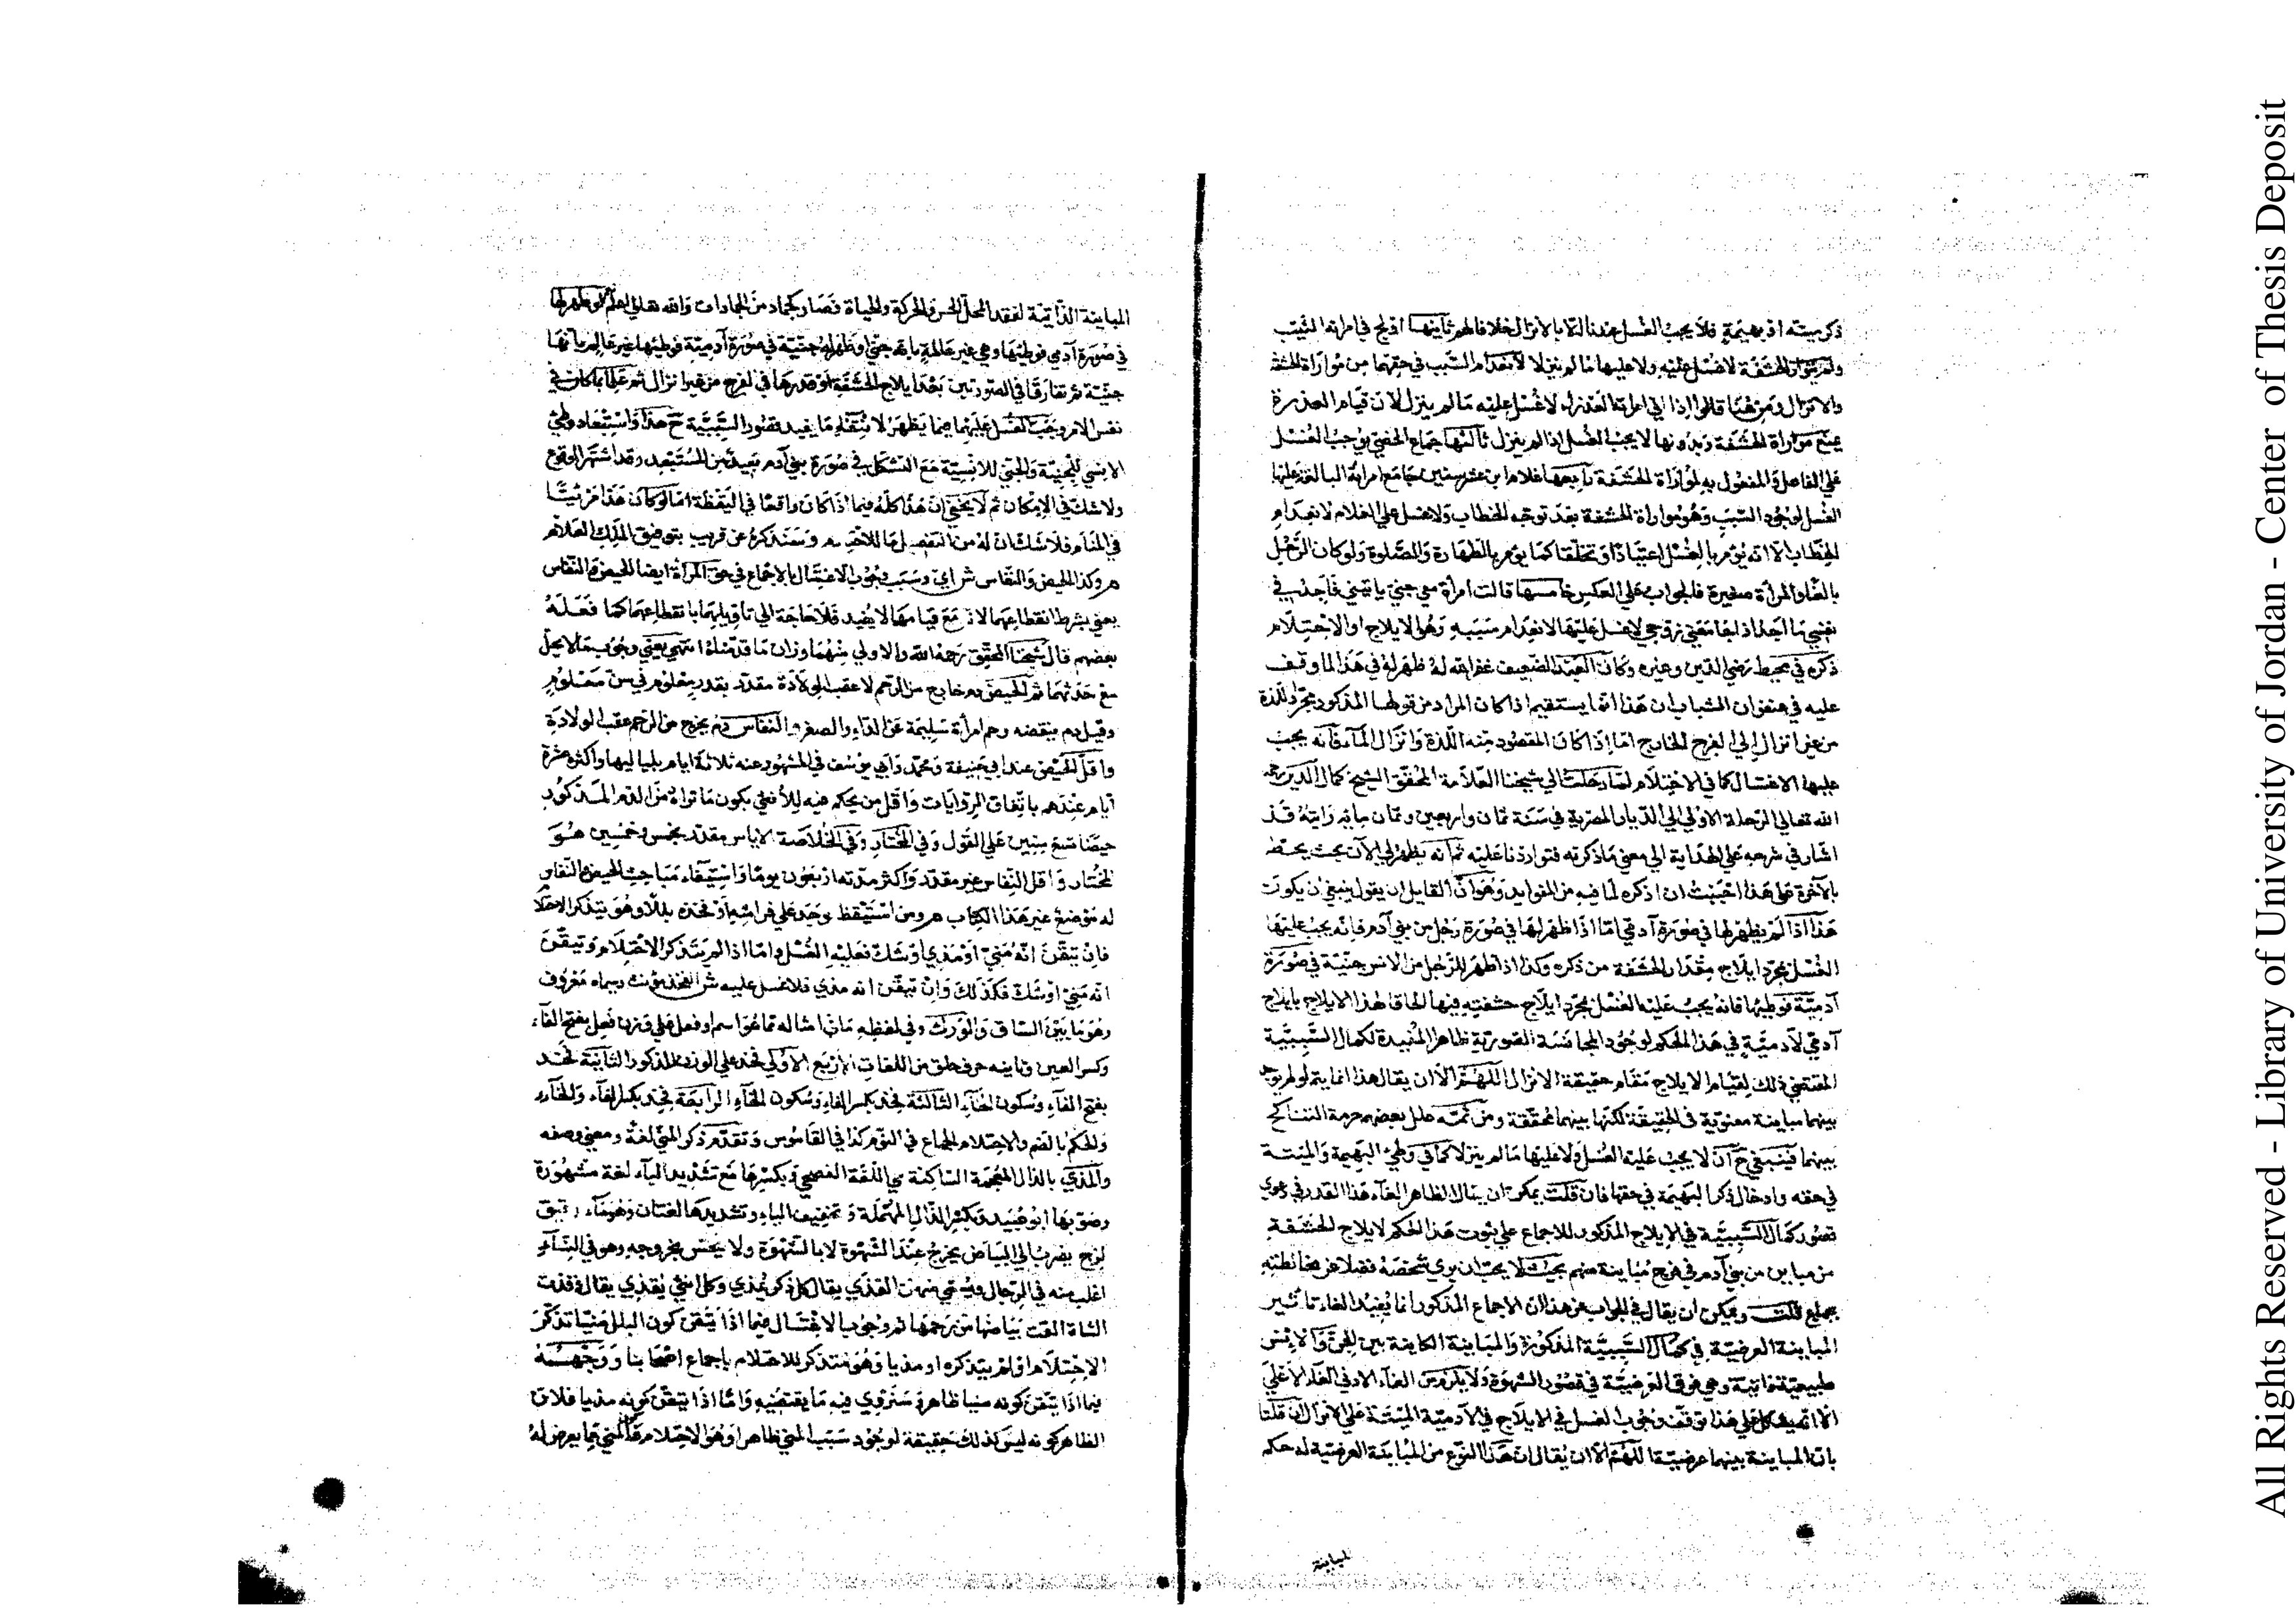 ذكر ميتة او بهيمة فلا يجب الغسل عندنا الا بالانزال خلافا لهم ثانيها اولج في امراته الثيب
ولم يتوار الحشفة لا غسل عليه ولا عليها ما لم ينزلا لانعدام السبب في حقهما من مواراة الحشفة
والانزال ومن هنا قالوا اذا اتى امراته العذراء لا غسل عليه ما لم ينزل لان قيام العذرة
يمنع مواراة الحشفة وبدونها لا يجب الغسل اذا لم ينزل ثالثها جماع الخصي يوجب الغسل
على الفاعل والمفعول به لمواراة الحشفة رابعها غلام ابن عشر سنين جامع امراته البالغة عليها
الغسل لوجود السبب وهو مواراة الحشفة بعد توجه الخطاب ولا غسل على الغلام لانعدام
الخطاب الا انه يؤمر بالغسل اعتيادا وتخلقا كما يؤمر بالطهارة والصلوة ولو كان الرجل
بالغا والمراة صغيرة فالجواب على العكس خامسها قالت امراة معي جني ياتيني فاجد في
نفسي ما اجد اذا جامعني زوجي لا غسل عليها لانعدام سببه وهو الايلاج او الاحتلام
ذكره في محيط رضي الدين وغيره وكان العبد الضعيف غفر الله له ظهر له في هذا لما وقف
عليه في عنفوان الشباب ان هذا انما يستقيم اذا كان المراد من قولها المذكور مجرد اللذة
من غير انزال الى الفرج الخارج اما اذا كان المقصود منه اللذة وانزال الماء فانه يجب
عليها الاغتسال كما في الاحتلام لما رحلت الى شيخنا العلامة المحقق الشيخ كمال الدين رحمه
الله تعالى الرحلة الاولى الى الديار المصرية في سنة ثمان واربعين وثمان مائة رايته قد
اشار في شرحه على الهداية الى معنى ما ذكرته فتواردنا عليه ثم انه يظهر لي الان بحث يحط
بالاخرة على هذا احببت ان اذكره لما فيه من الفوايد وهو ان القايل ان يقول ينبغي ان يكون
هذا اذا لم يظهر لها في صورة آدمي اما اذا ظهر لها في صورة رجل من بني آدم فانه يجب عليها
الغسل بمجرد ايلاج مقدار الحشفة من ذكره وكذا اذا ظهر للرجل من الانس جنية في صورة
آدمية فوطئها فانه يجب عليه الغسل بمجرد ايلاج حشفته فيها الحاقا لهذا الايلاج بايلاج
آدمي لآدمية في هذا الحكم لوجود المجانسة الصورية ظاهرا المفيدة لكمال السببية
المقتضي ذلك لقيام الايلاج مقام حقيقة الانزال اللهم الا ان يقال هذا انما يتم لو لم يوجد
بينهما مباينة معنوية في الحقيقة لكنها بينهما محققة ومن ثمة علل بعضهم حرمة التناكح
بينهما فينبغي ح ان لا يجب عليه الغسل ولا عليها ما لم ينزلا كما في وطئ البهيمة والميتة
في حقه وادخال ذكر البهيمة في حقها فان قلت يمكن ان يقال الظاهر الغاء هذا القدر في دعوى
قصور كمال السببية في الايلاج المذكور للاجماع على ثبوت هذا الحكم لايلاج الحشفة
من مباين من بني آدم في فرج مباينة منهم بحيث لا يحب ان يرى شخصه فضلا عن مخالطته
بجماع قلت ويمكن ان يقال في الجواب عن هذا ان الاجماع المذكور انما يفيد الغاء تاثير
المباينة العرضية في كمال السببية المذكورة والمباينة الكاينة بين الجن والانس
طبيعية ذاتية وهي فوق العرضية في قصور الشهوة ولا يلزم من الغاء الادنى الغاء الاعلى
الا انه يشكل على هذا توقف وجوب الغسل في الايلاج في الآدمية الميتة على الانزال ان قلنا
بان المباينة بينهما عرضية اللهم الا ان يقال ان هذا النوع من المباينة العرضية له حكم
المباينة
المباينة الذاتية لفقد المحل الحس والحركة والحياة فصار كجماد من الجمادات والله تعالى اعلم لو ظهر لها
في صورة آدمي فوطئها وهي غير عالمة بانه جني او ظهر له جنية في صورة آدمية فوطئها غير عالم بانها
جنية ثم تفارقا في الصورتين بعد ايلاج الحشفة او قدرها في الفرج من غير انزال ثم علما بما كان في
نفس الامر وجب الغسل عليهما فيما يظهر لانتفاء ما يفيد قصور السببية ح هذا واستبعاد وطئ
الانسي للجنية والجني للانسية مع التشكل في صورة بني آدم بعيد من المستبعد وقد اشتهر الوقوع
ولا شك في الامكان ثم لا يخفى ان هذا كله فيما اذا كان واقعا في اليقظة اما لو كان هذا مرئيا
في المنام فلا شك ان له من التفصيل ما للاحتلام وسنذكره عن قريب بتوفيق الملك العلام
م وكذا الحيض والنفاس ش اي وسبب وجوب الاغتسال بالاجماع في حق المراة ايضا الحيض والنفاس
يعني بشرط انقطاعهما لان مع قيامها لا يفيد فلا حاجة الى تاويلهما بانقطاعهما كما فعله
بعضهم قال شيخنا المحقق رحمه الله والاولى منهما وزان ما قدمناه انتهى يعني وجوب ما لا يحل
مع حدثهما ثم الحيض دم خارج من الرحم لا عقب الولادة مقدر بقدر معلوم في سن معلوم
وقيل دم ينفضه رحم امراة سليمة عن الداء والصغر والنفاس دم يخرج من الرحم عقب الولادة
واقل الحيض عند ابي حنيفة ومحمد وابي يوسف في المشهور عنه ثلاثة ايام بلياليها واكثره عشرة
ايام عندهم باتفاق الروايات واقل من يحكم فيه للانثى بكون ما تراه من الدم المذكور
حيضا تسع سنين على القول وفي المختار وفي الخلاصة الاياس مقدر بخمس وخمسين هو
المختار واقل النفاس غير مقدر واكثر مدته اربعون يوما واستيفاء مباحث الحيض والنفاس
له موضع غير هذا الكتاب م ومن استيقظ وجد على فراشه او فخذه بللا وهو يتذكر الاحتلام
فان تيقن انه مني او مذي او شك فعليه الغسل واما اذا لم يتذكر الاحتلام وتيقن
انه مني او شك فكذلك وان تيقن انه مذي فلا غسل عليه ش الفخذ مؤنث سماه معروف
وهو ما بين الساق والورك وفي لفظه مافي امثاله مما هو اسم او فعل على وزن فعل بفتح الفاء
وكسر العين وثانيه حرف حلق من اللغات الاربع الاولى فخذ على الوزن المذكور الثانية فخذ
بفتح الفاء وسكون الخاء الثالثة فخذ بكسر الفاء وسكون الخاء الرابعة فخذ بكسر الفاء والخاء
والحلم بالضم والاحتلام الجماع في النوم كذا في القاموس وتقدم ذكر المني لغة ومعنى وصفه
والمذي بالذال المعجمة الساكنة هي اللغة الفصحى وبكسرها مع تشديد الياء لغة مشهورة
وصوبها ابو عبيد وبكسر الذال المهملة وتخفيف الياء وتشديدها لغتان وهو ماء رقيق
لزج يضرب الى البياض يخرج عند الشهوة لا بالشهوة ولا يحس بخروجه وهو في النساء
اغلب منه في الرجال ويسمى منهن القذي يقال كل ذكر يمذي وكل انثى يقذي يقال قذت
الشاة القت بياضها من رحمها ثم وجوب الاغتسال فيما اذا تيقن كون البلل منيا تذكر
الاحتلام او لم يتذكره او مذيا وهو متذكر للاحتلام باجماع اصحابنا ووجهه
فيما اذا تيقن كونه منيا ظاهر وسنروي فيه ما يقتضيه واما اذا تيقن كونه مذيا فلان
الظاهر كونه ليس كذلك حقيقة لوجود سبب المني ظاهرا وهو الاحتلام والمني مما يعرض له
All Rights Reserved - Library of University of Jordan - Center of Thesis Deposit